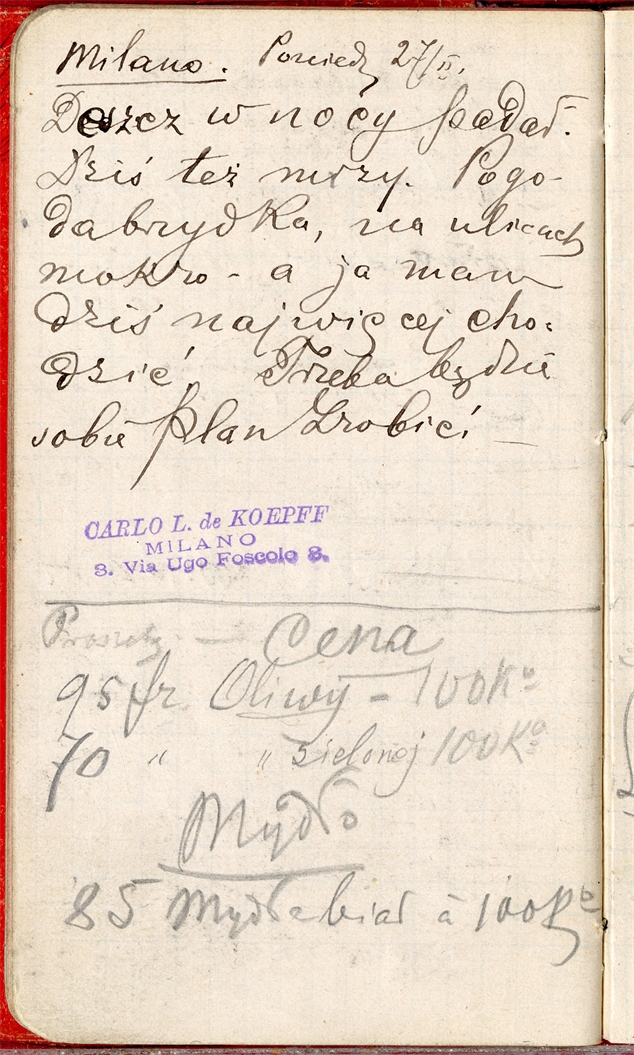 Milano. Poniedz 27/II.
Deszcz w nocy padał.
Dziś też mrzy. Pogo-
da brzydka, na ulicach
mokro - a ja mam
dziś najwięcej cho-
dzić. Trzeba będzie
sobie plan zrobić
CARLO L. de KOEPFF
MILANO
8. Via Ugo Foscolo 8.
Cena
95 fr Oliwy - 100Ko
70 " " zielonej 100Ko
Mydło
85 Mydła biał à 100Ko